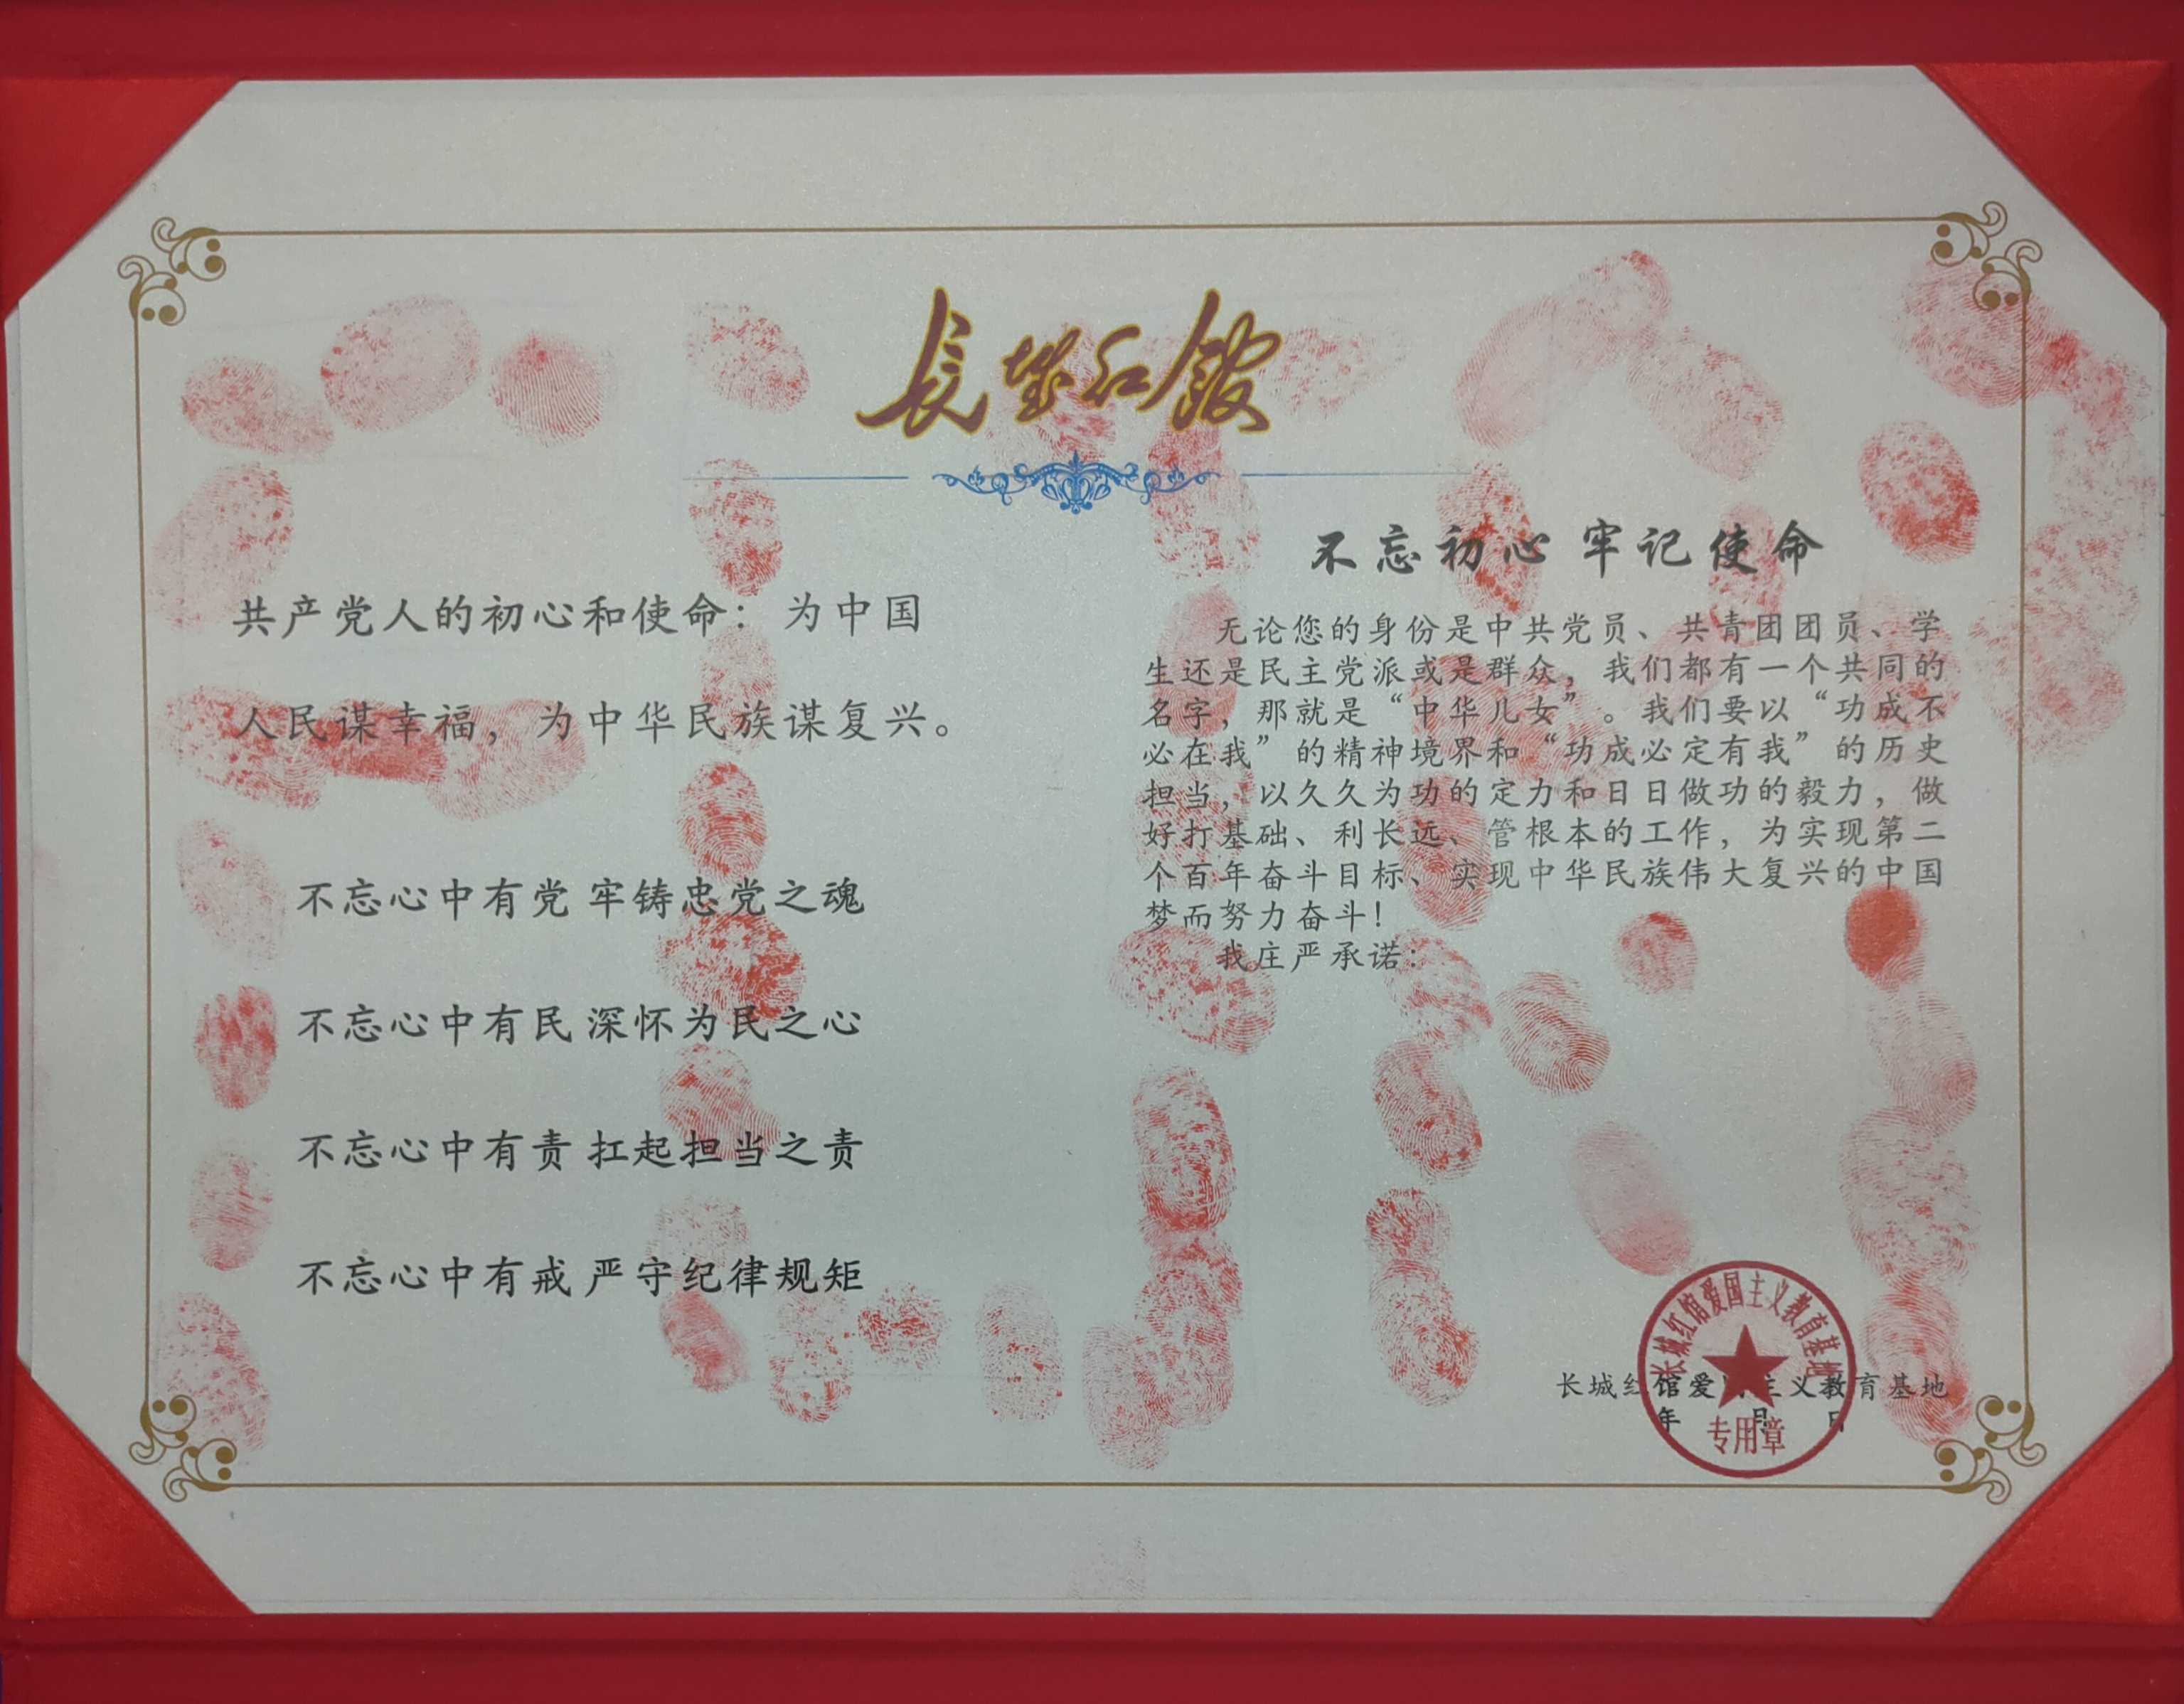 長城红馆
共产党人的初心和使命：为中国
人民谋幸福，为中华民族谋复兴。
不忘心中有党 牢铸忠党之魂
不忘心中有民 深怀为民之心
不忘心中有责 扛起担当之责
不忘心中有戒 严守纪律规矩
不忘初心 牢记使命
无论您的身份是中共党员、共青团团员、学
生还是民主党派或是群众，我们都有一个共同的
名字，那就是“中华儿女”。我们要以“功成不
必在我”的精神境界和“功成必定有我”的历史
担当，以久久为功的定力和日日做功的毅力，做
好打基础、利长远、管根本的工作，为实现第二
个百年奋斗目标、实现中华民族伟大复兴的中国
梦而努力奋斗！
我庄严承诺：
长城红馆爱国主义教育基地
年 月 日
长城红馆爱国主义教育基地
专用章